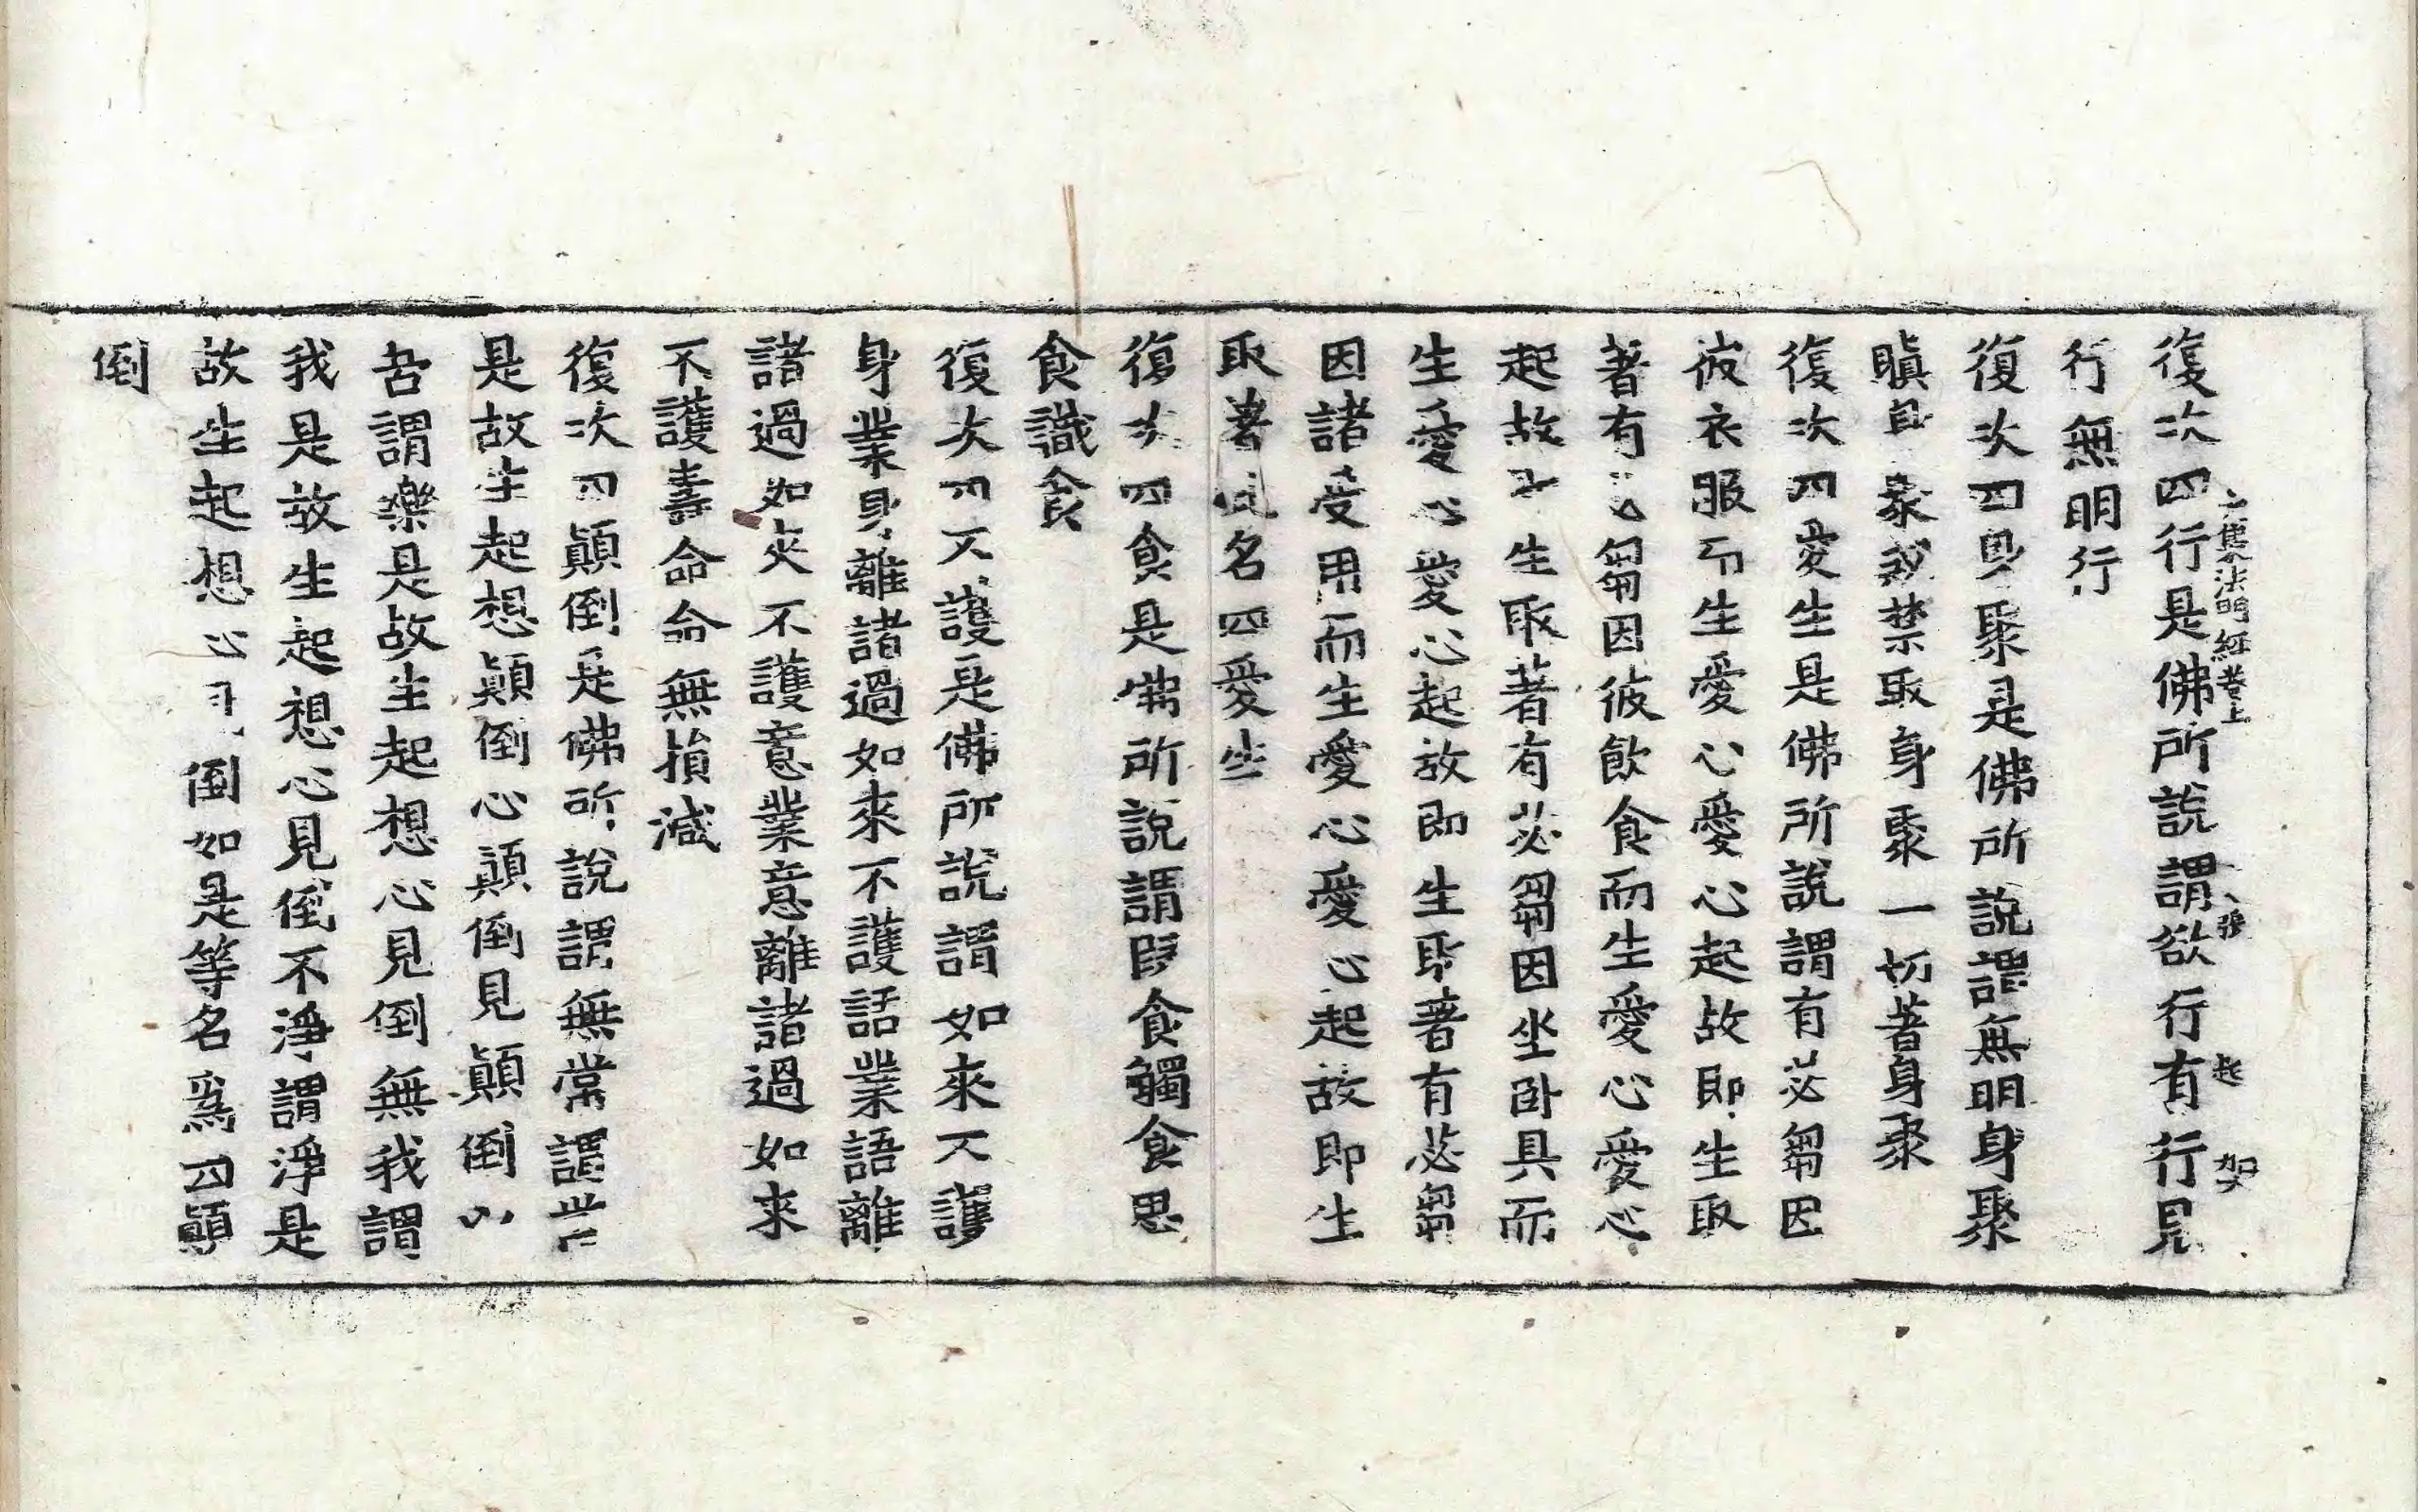 復次四行是佛所說謂欲行有行見
大集法門經卷上 張 起 加
行無明行
復次四身聚是佛所說謂無明身聚
瞋身聚戒禁取身聚一切著身聚
復次四愛生是佛所說謂有苾芻因
彼衣服而生愛心愛心起故即生取
著有苾芻因彼飲食而生愛心愛心
起故生取著有苾芻因坐卧具而
生愛心愛心起故即生取著有苾芻
因諸受用而生愛心愛心起故即生
取著名四愛生
復次四食是佛所說謂段食觸食思
食識食
復次四不護是佛所說謂如來不護
身業身離諸過如來不護語業語離
諸過如來不護意業意離諸過如來
不護壽命命無損減
復次四顛倒是佛所說謂無常謂常
是故生起想顛倒心顛倒見顛倒以
苦謂樂是故生起想心見倒無我謂
我是故生起想心見倒不淨謂淨是
故生起想心見倒如是等名爲四顛
倒